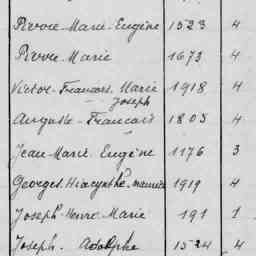 Pierre-Marie-Eugène 1523 4
Pierre-Marie 1673 4
Victor-Francois, Marie 1918 4
Joseph
Auguste-Francois 1805 4
Jean-Marie-Eugène 1176 3
Georges-Hiacynthe-Maurice 1919 4
Joseph-Henri-Marie 191 1
Joseph-Adolphe 1524 4